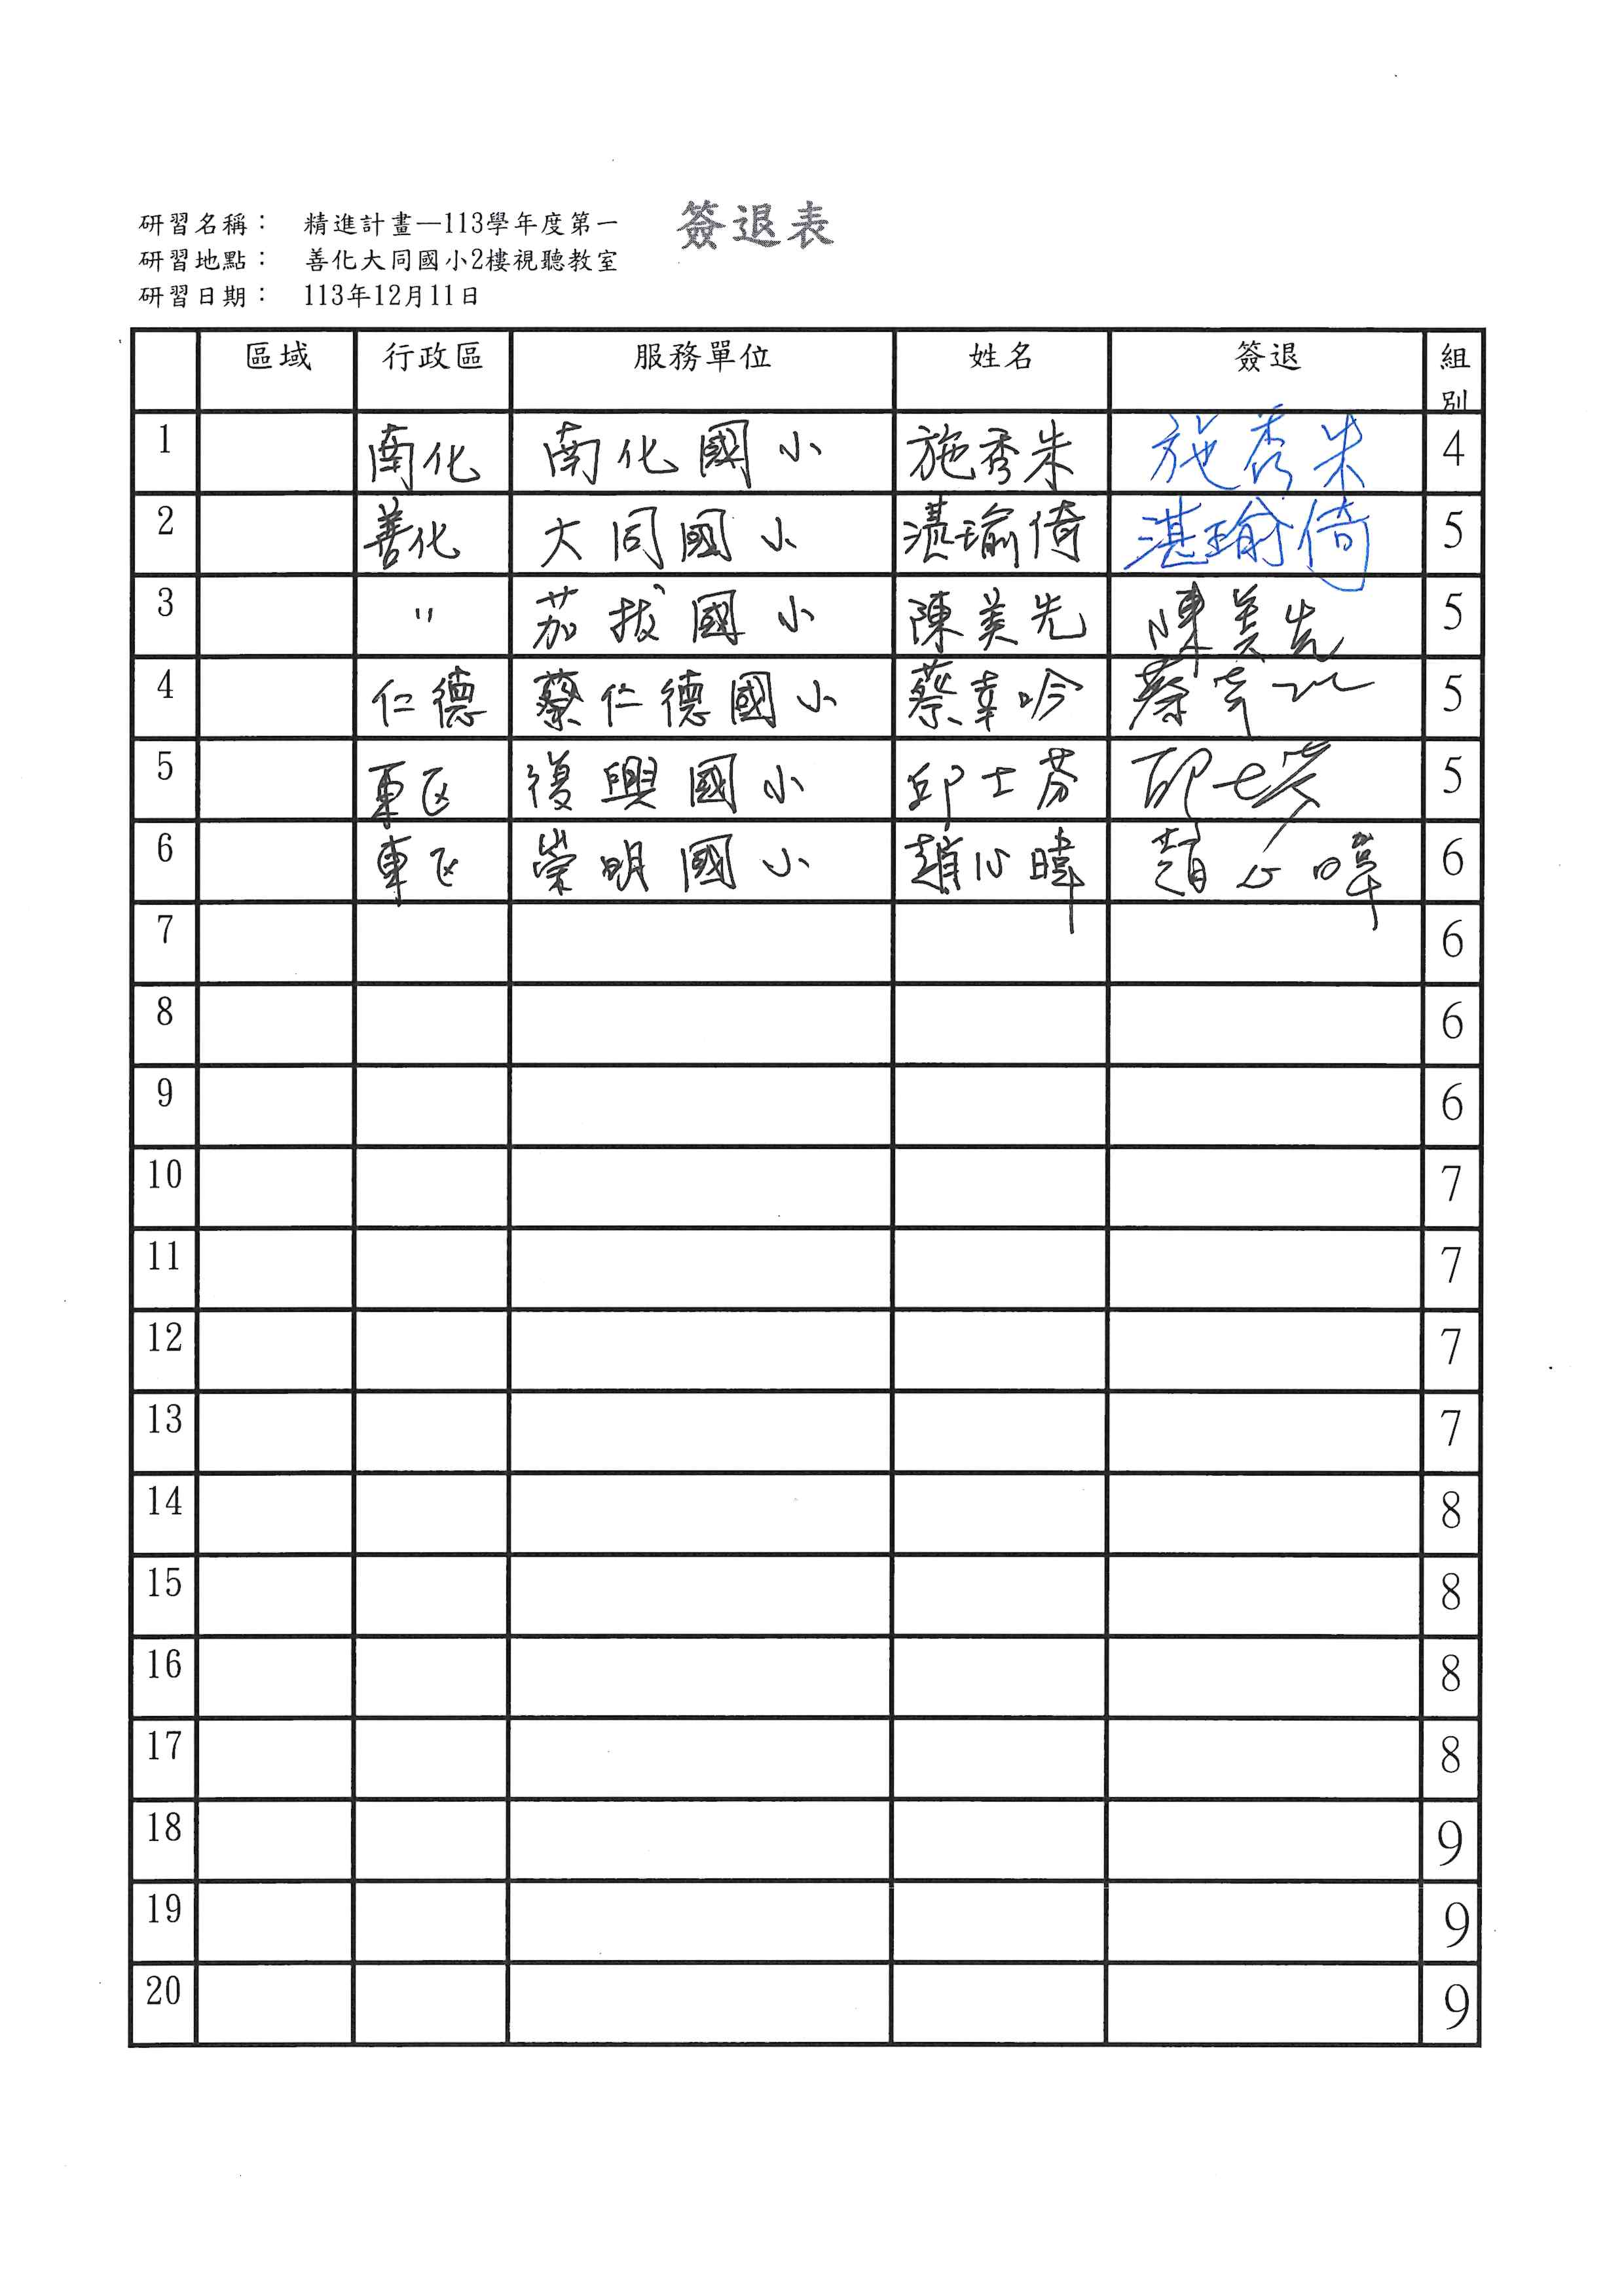 簽退表
研習名稱： 精進計畫—113學年度第一
研習地點： 善化大同國小2樓視聽教室
研習日期： 113年12月11日
區域 行政區 服務單位 姓名 簽退 組別
1 南化 南化國小 施秀朱 施秀朱 4
2 善化 大同國小 湛瑜倚 湛瑜倚 5
3 〃 茄拔國小 陳美先 陳美先 5
4 仁德 仁德國小 蔡幸吟 蔡幸吟 5
5 東区 復興國小 邱士芬 邱士芬 5
6 東区 崇明國小 趙心暐 趙心暐 6
7 6
8 6
9 6
10 7
11 7
12 7
13 7
14 8
15 8
16 8
17 8
18 9
19 9
20 9